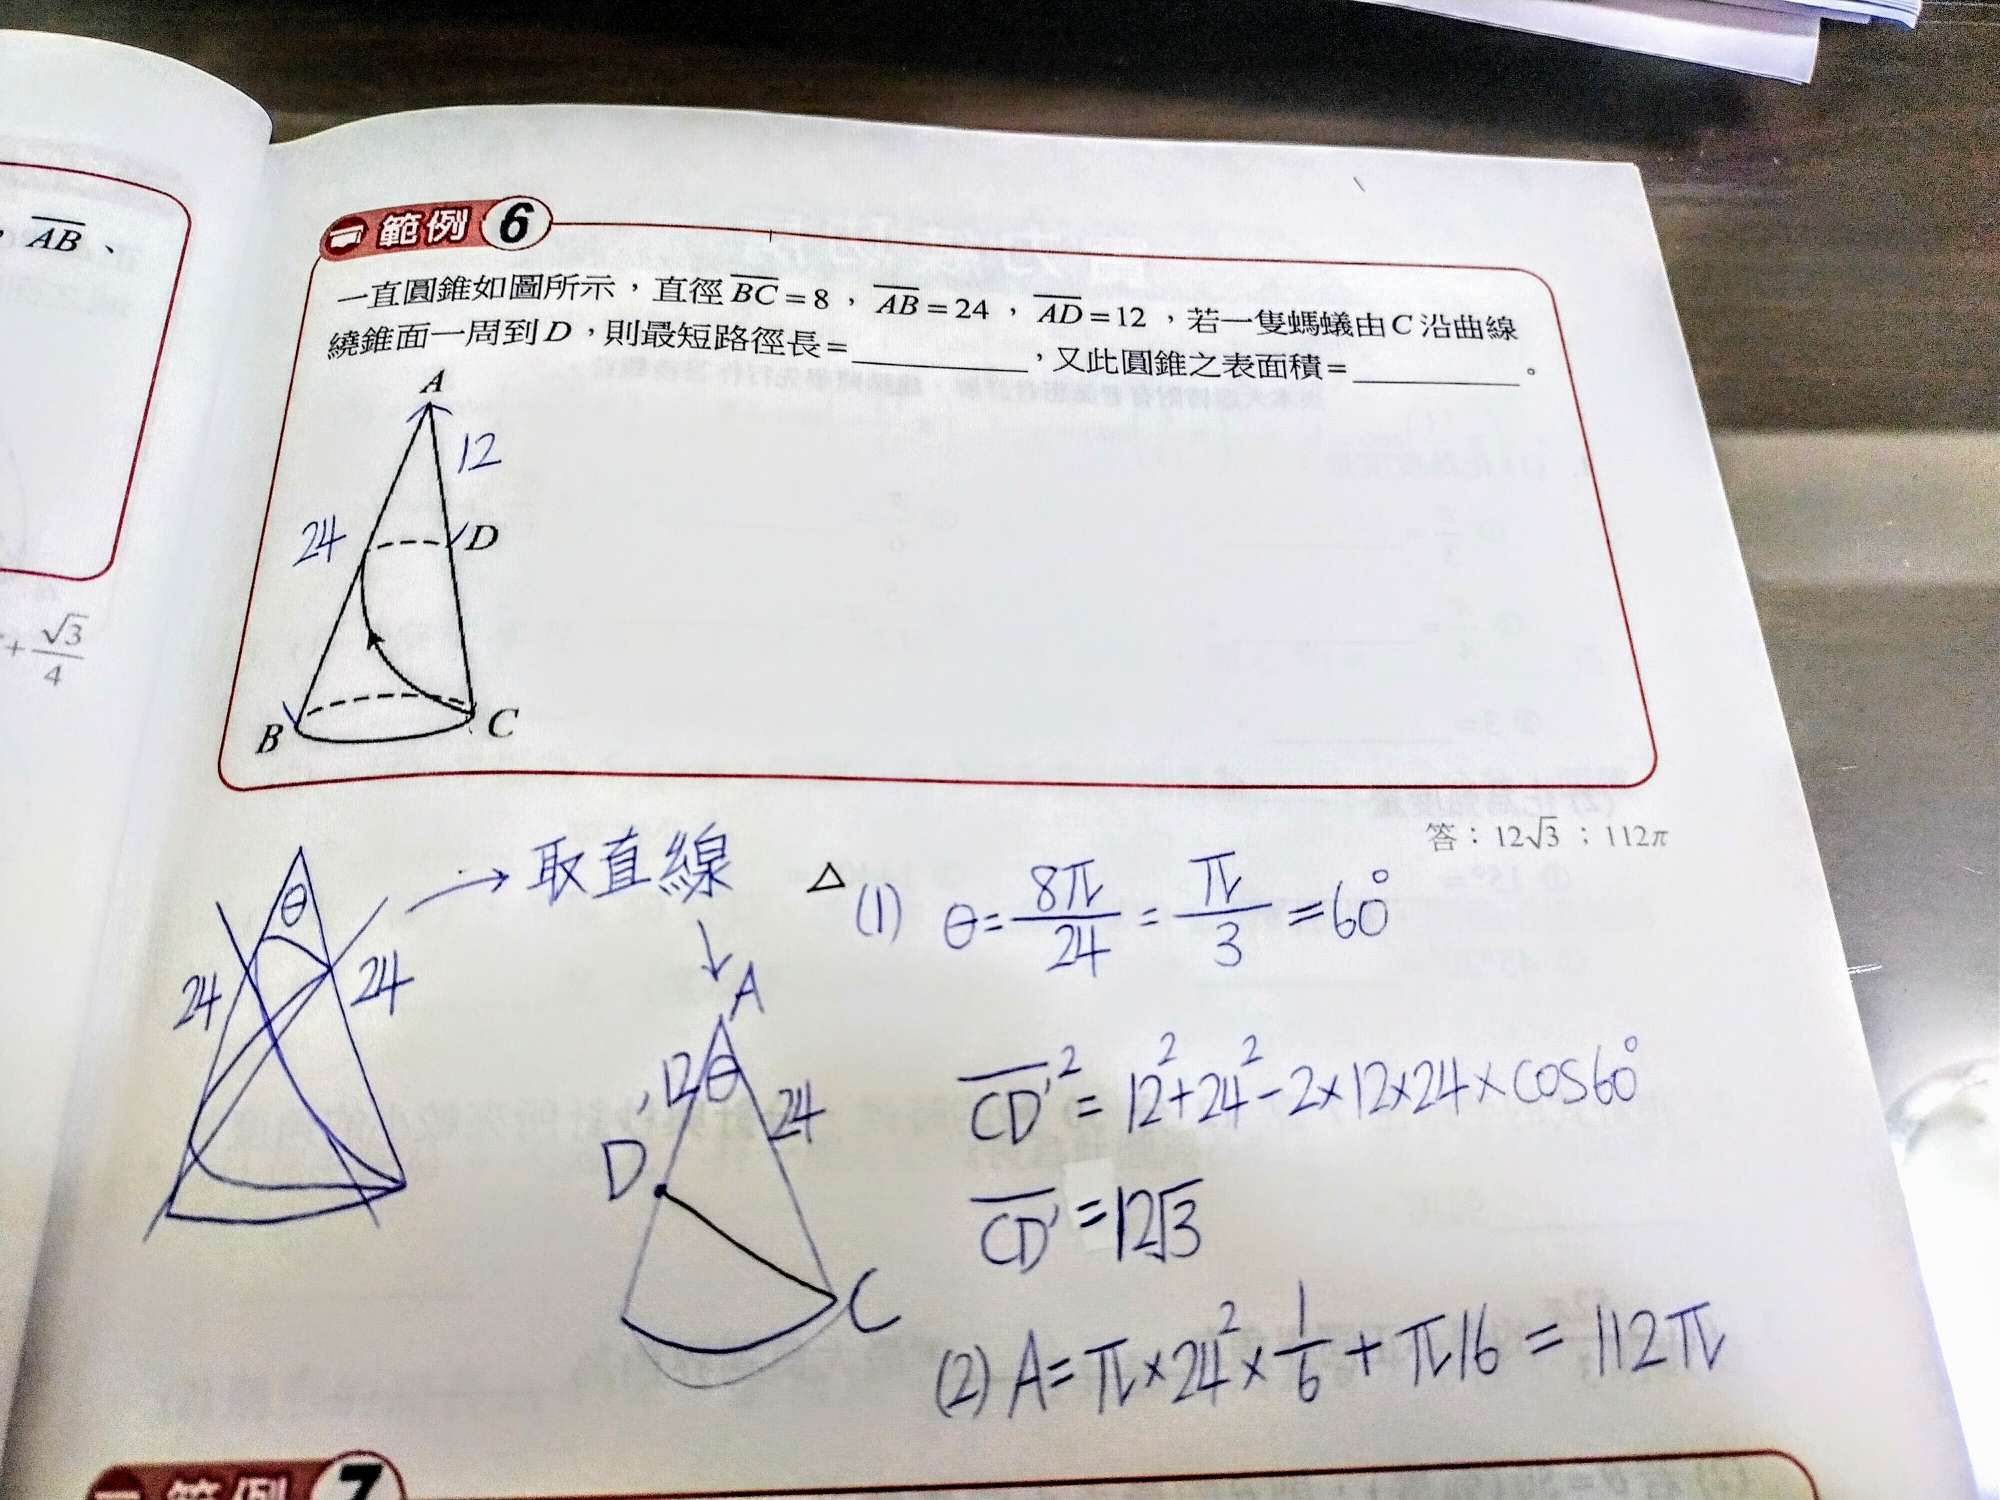 , AB、
+ √3/4
範例 6
一直圓錐如圖所示,直徑BC=8,AB=24,AD=12,若一隻螞蟻由C沿曲線
繞錐面一周到D,則最短路徑長=__________,又此圓錐之表面積=__________。
A
12
24
D
B
C
答:12√3;112π
θ
24
24
→取直線
A
12
θ
24
D'
C
△(1) θ=8π/24=π/3=60°
CD'²=12²+24²-2×12×24×cos60°
CD'=12√3
(2) A=π×24²×1/6+π16=112π
範例 7